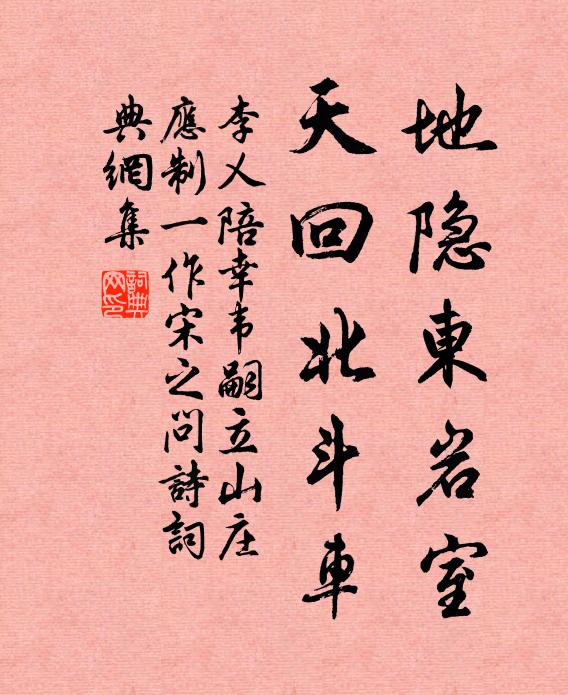 地隐東岩室
天回北斗車
李乂陪幸韦嗣立山庄
應制一作宋之问詩詞
典網集
詞典网印